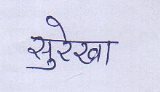 सुरेखा